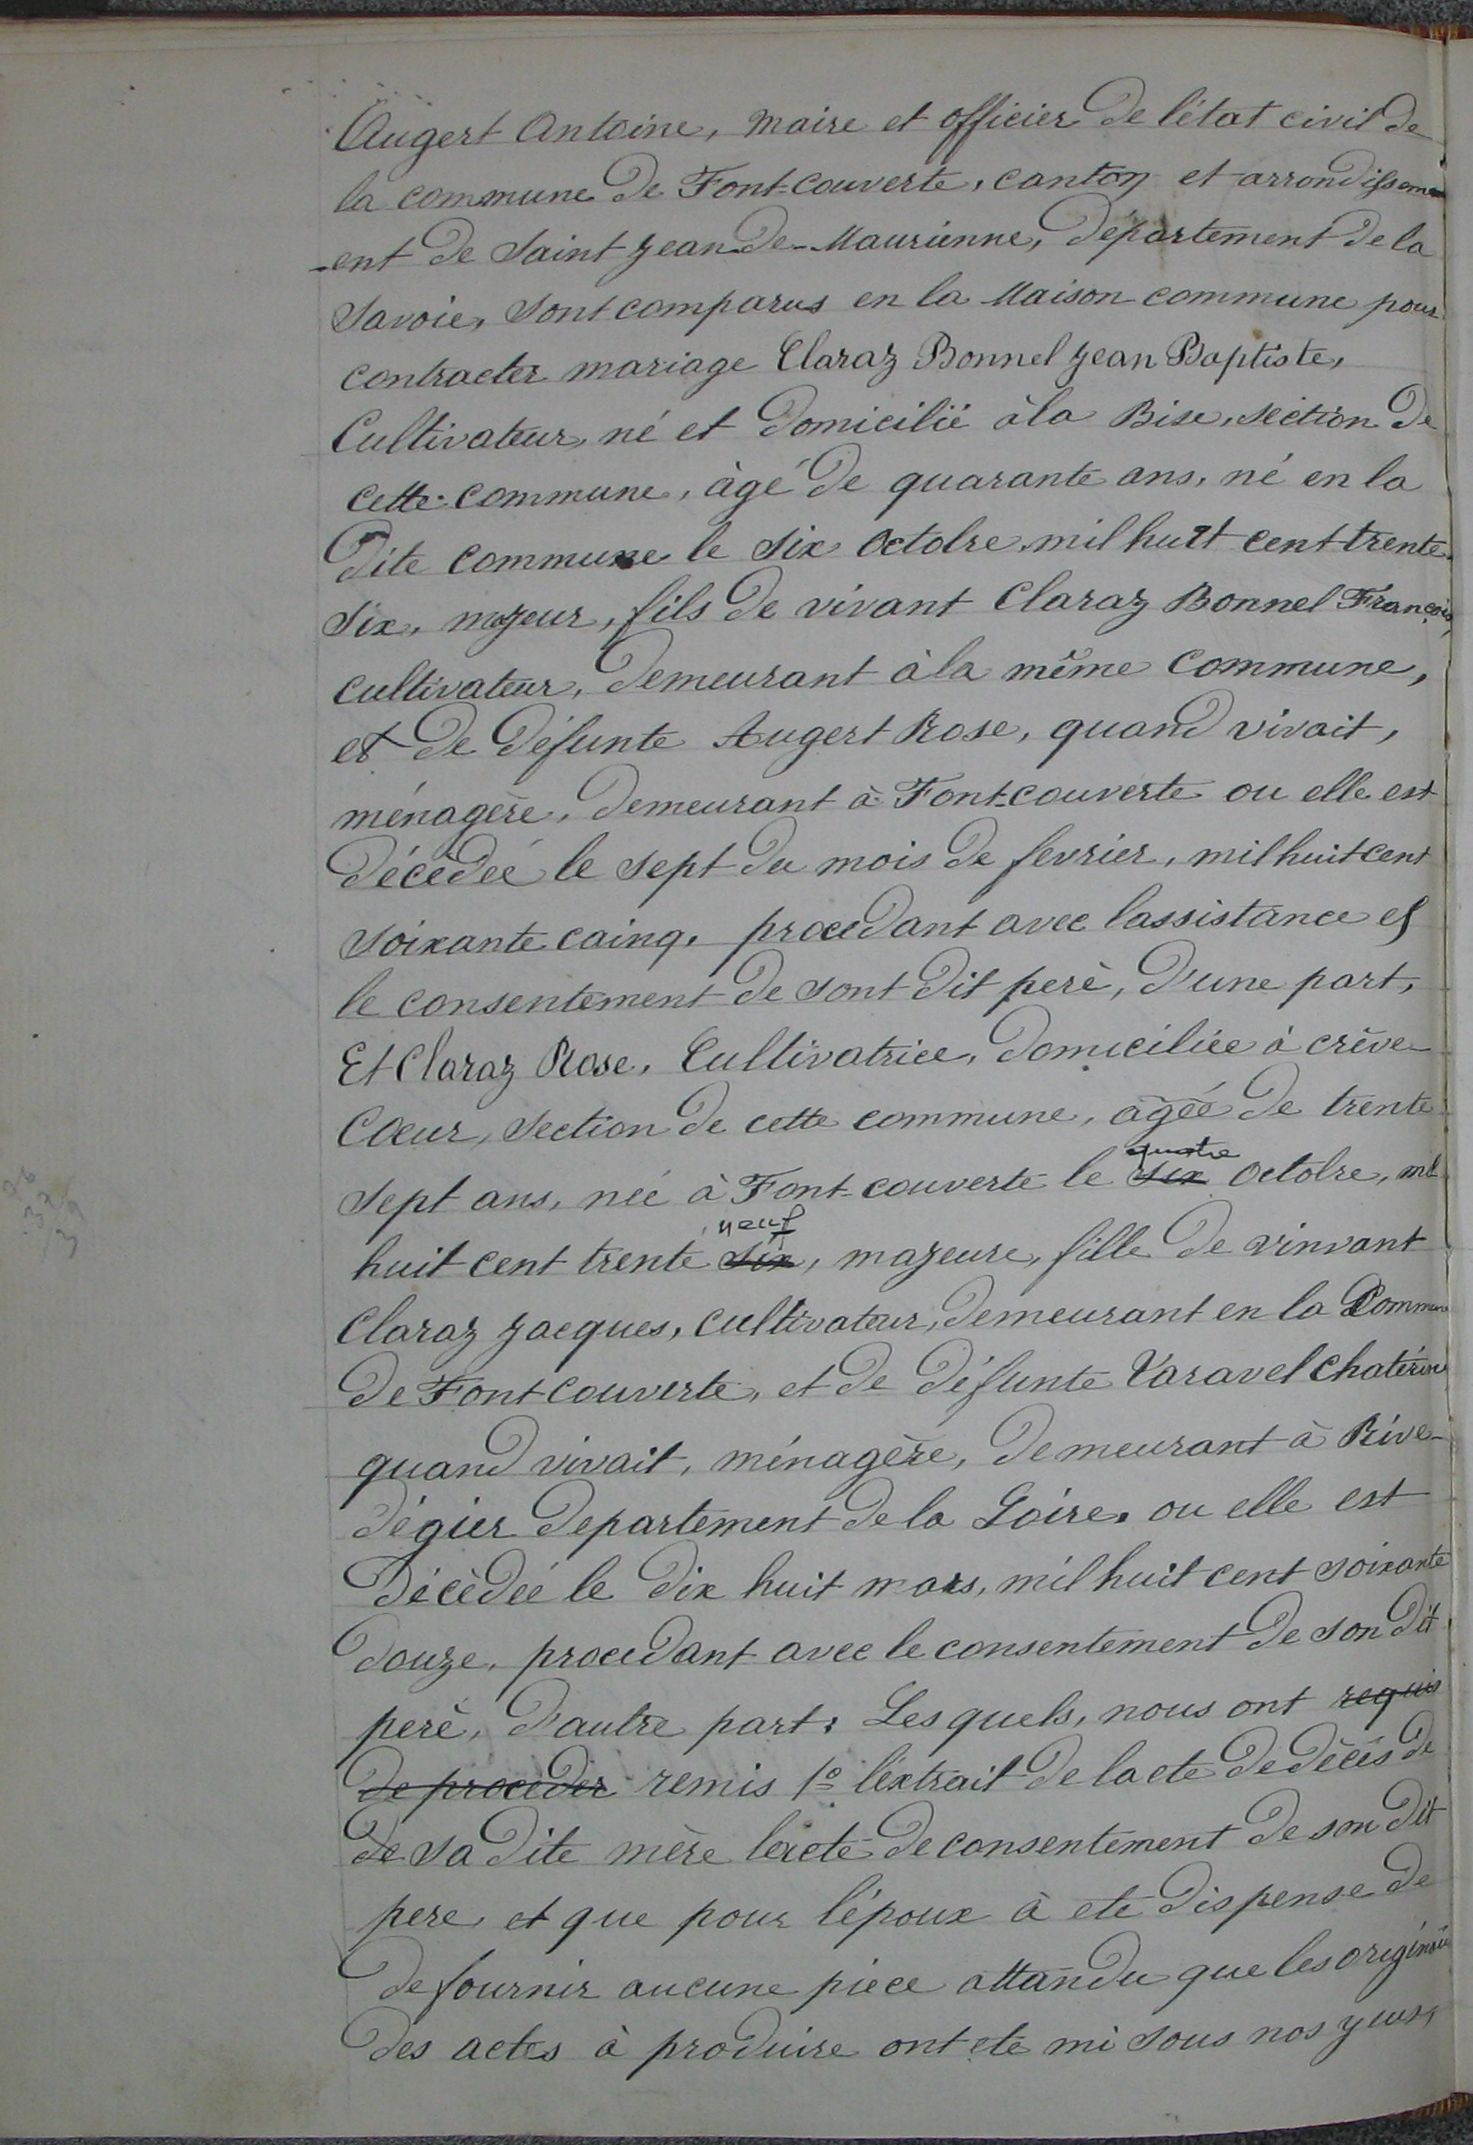 Augert Antoine, Maire et officier de l'état civil de
la commune de Font-couverte, canton et arrondissem
-ent de Saint Jean-de-Maurienne, département de la
Savoie, Sont comparus en la Maison commune pour
contracter mariage Claraz Bonnel Jean Baptiste,
Cultivateur, né et domicilié à la Bise, section de
cette commune, âgé de quarante ans, né en la
dite commune le six Octobre mil huit cent trente
six, majeur, fils de vivant Claraz Bonnel François,
cultivateur, demeurant à la même commune,
et de défunte Augert Rose, quand vivait,
ménagère, demeurant à Font-couverte ou elle est
décédée le sept du mois de fevrier, mil huit cent
soixante cainq, procedant avec lassistance et
le consentement de sont dit perè, d'une part,
Et Claraz Rose, Cultivatrice, domiciliée à crève-
Cœur, section de cette commune, âgée de trente
quatre
sept ans, née à Font-couverte le six Octobre, mil
neuf
huit cent trente six, majeure, fille de vinvant
Claraz Jacques, cultivateur, demeurant en la Commune
de Font couverte, et de défunte Varavel Chaterine
quand vivait, ménagère, demeurant à Rive-
dégier departement de la Loire, ou elle est
décédée le dix huit mars, mil huit cent soixante
douze, procedant avec le consentement de son dit
perè, d'autre part; Les quels, nous ont requis
de procéder remis 1º l'éxtrait de lacte de décès de
de sa dite mère lacte de consentement de son dit
pere, et que pour l'époux à eté dispense de
de fournir aucune piece attandu que les originaux
des actes à produire ont eté mi sous nos yeux,